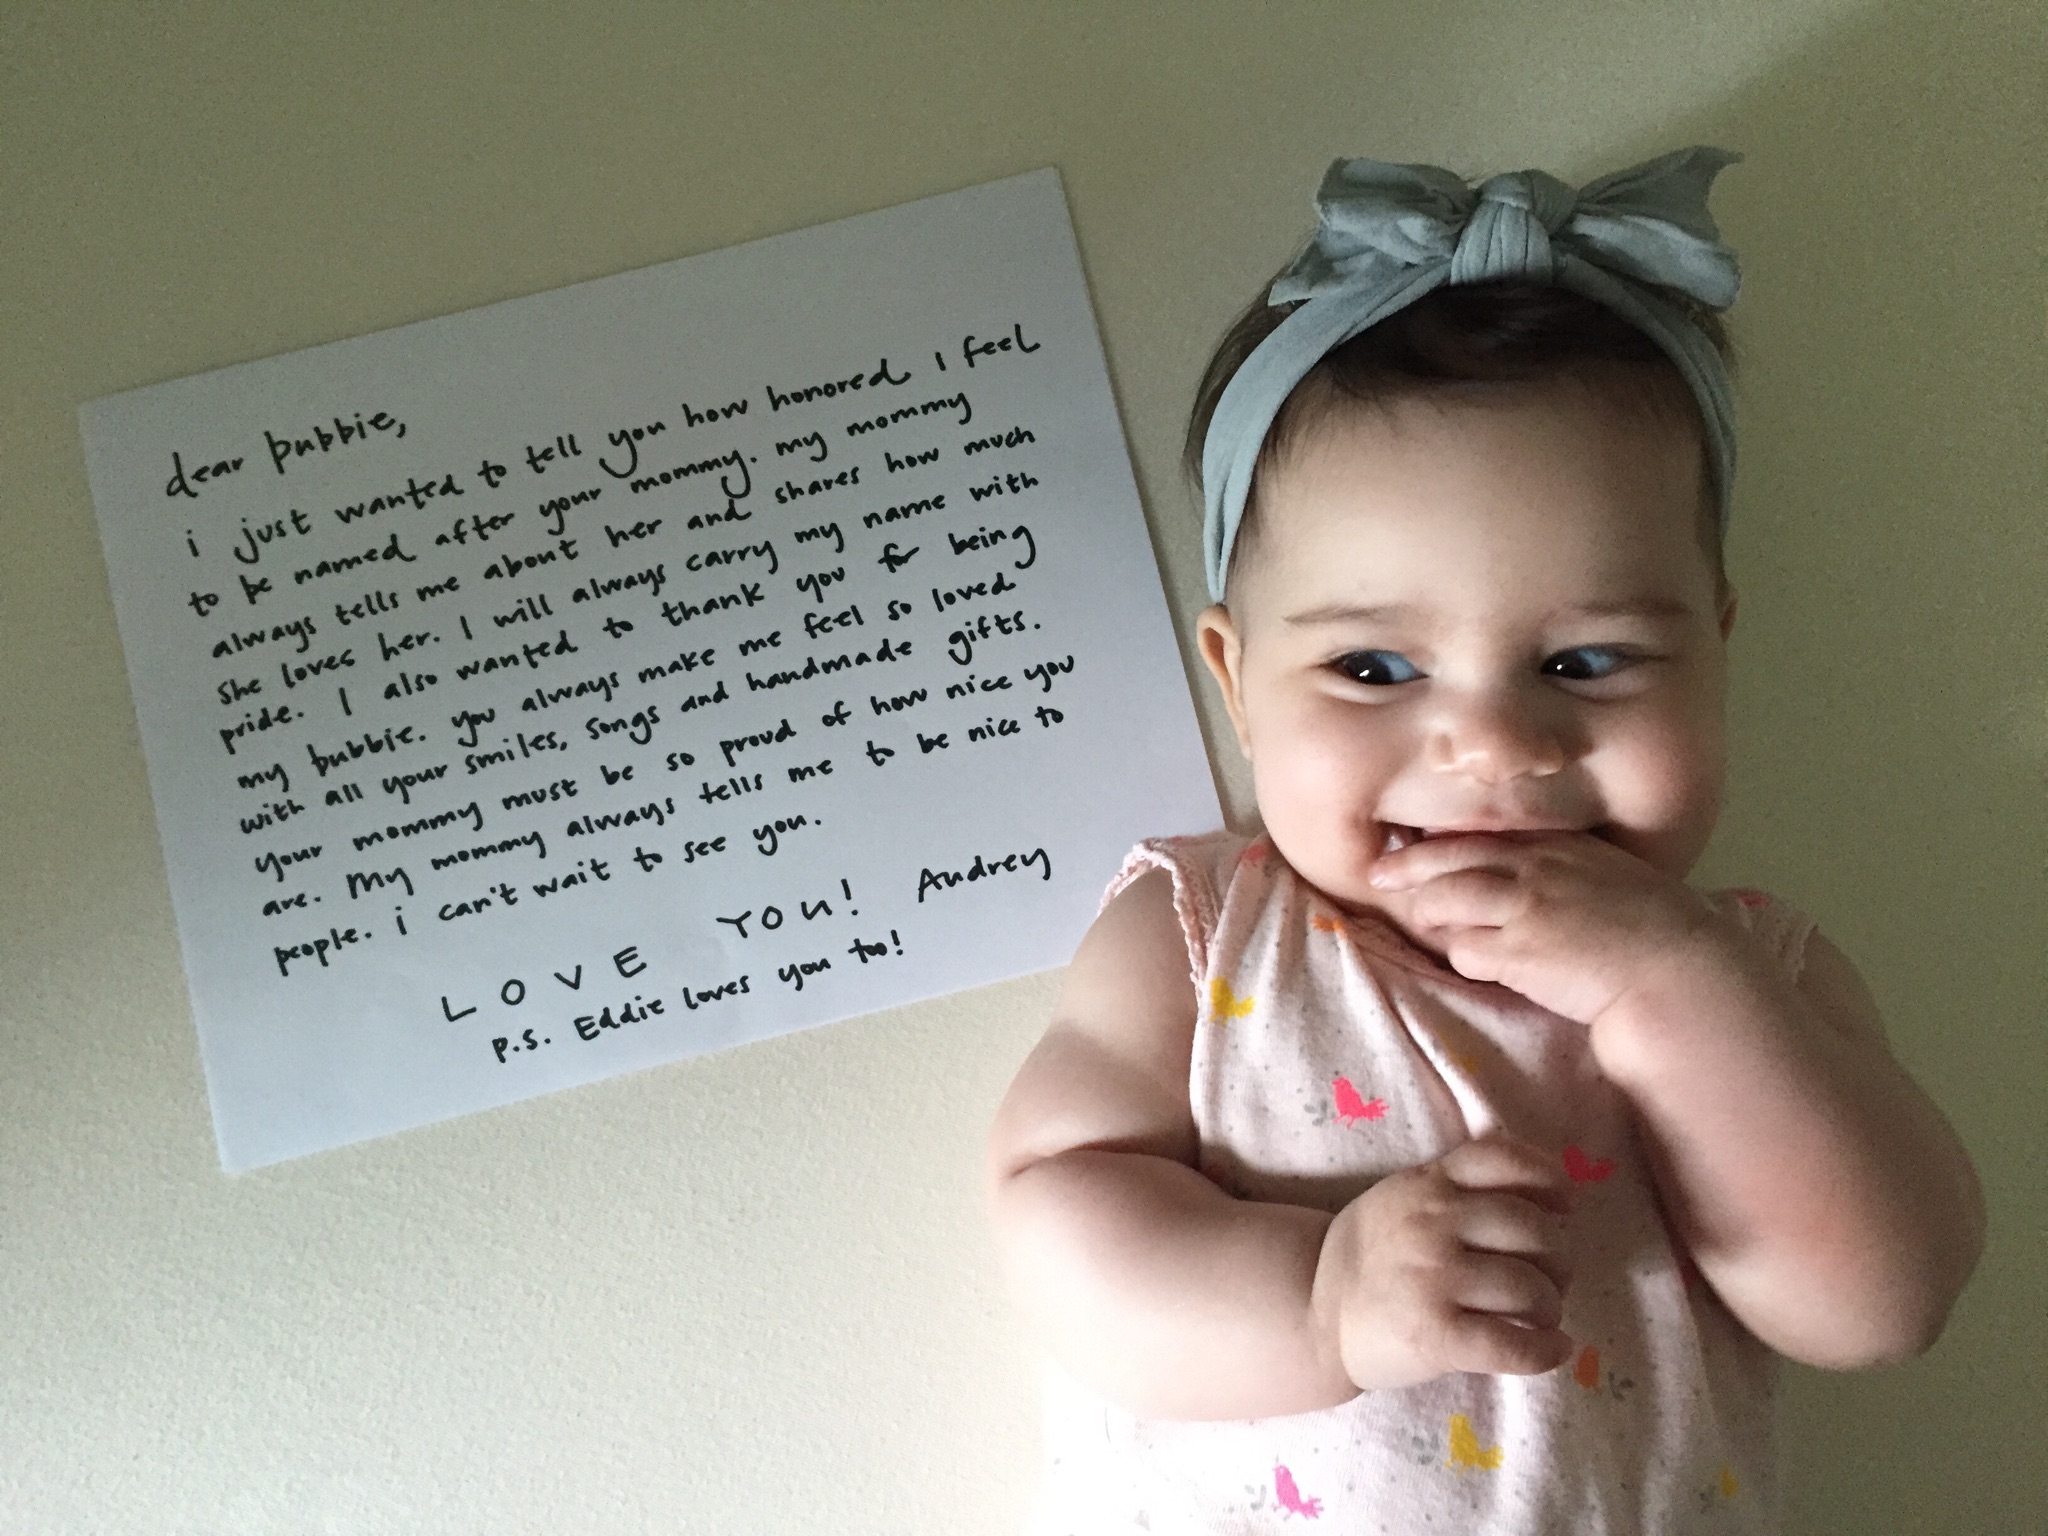 dear bubbie,
i just wanted to tell you how honored I feel
to be named after your mommy. my mommy
always tells me about her and shares how much
she loves her. I will always carry my name with
pride. I also wanted to thank you for being
my bubbie. you always make me feel so loved
with all your smiles, songs and handmade gifts.
your mommy must be so proud of how nice you
are. My mommy always tells me to be nice to
people. i can't wait to see you.
LOVE YOU! Audrey
p.s. Eddie loves you too!